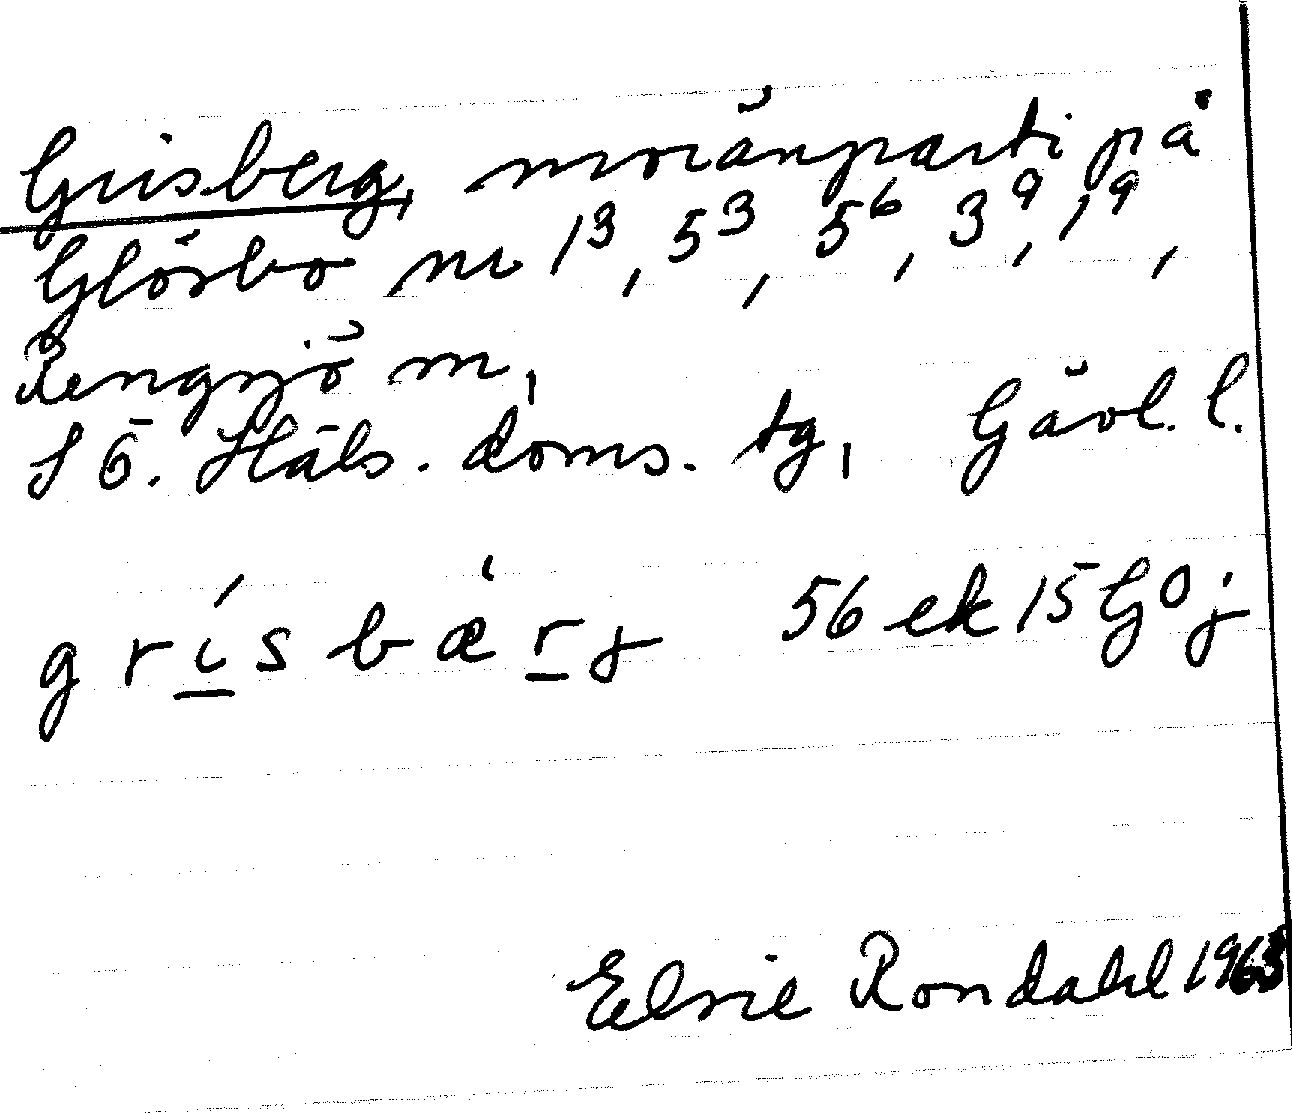 Grisberg, moränparti på
Glösbo nr 1³, 5³, 5⁶, 3⁹, 1⁹,
Rengsjö sn,
S Ö. Häls. doms. tg, Gävl. l.
grísbæ̀rj 56 ek 15 G0j
Elsie Rondahl 1963